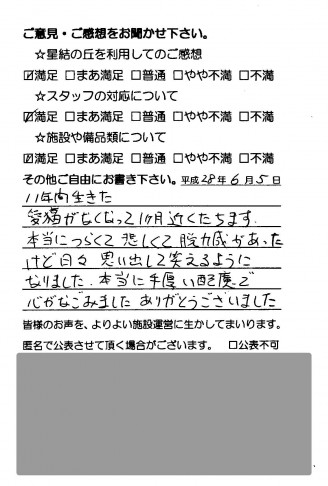 ご意見・ご感想をお聞かせ下さい。
☆星結の丘を利用してのご感想
☑満足 □まあ満足 □普通 □やや不満 □不満
☆スタッフの対応について
☑満足 □まあ満足 □普通 □やや不満 □不満
☆施設や備品類について
☑満足 □まあ満足 □普通 □やや不満 □不満
その他ご自由にお書き下さい。平成28年6月5日
11年間生きた
愛猫がなくなって1ヶ月近くたちます.
本当につらくて悲しくて脱力感があった
けど日々思い出して笑えるように
なりました.本当に手厚い配慮で
心がなごみました ありがとうございました
皆様のお声を、よりよい施設運営に生かしてまいります。
匿名で公表させて頂く場合がございます。 □公表不可